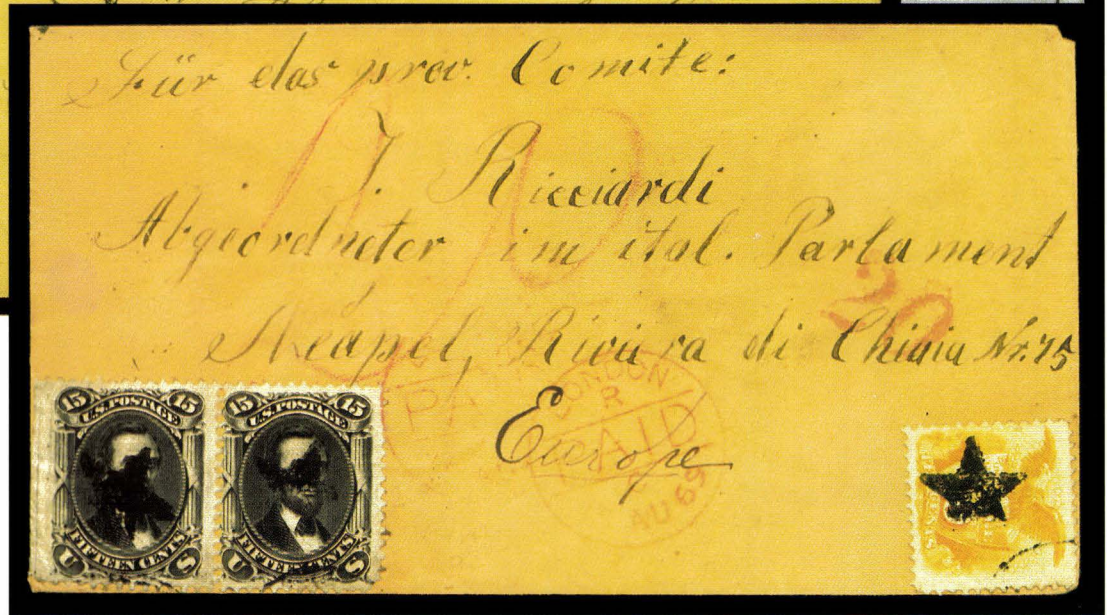 Für das prov. Comite:
J. Ricciardi
Abgeordneter im ital. Parlament
Neapel, Riviera di Chiaia Nr. 75
Europe
20
LONDON
R
PAID
AU 69
15 15
U.S. POSTAGE
FIFTEEN CENTS
U S
15 15
U.S. POSTAGE
FIFTEEN CENTS
U S